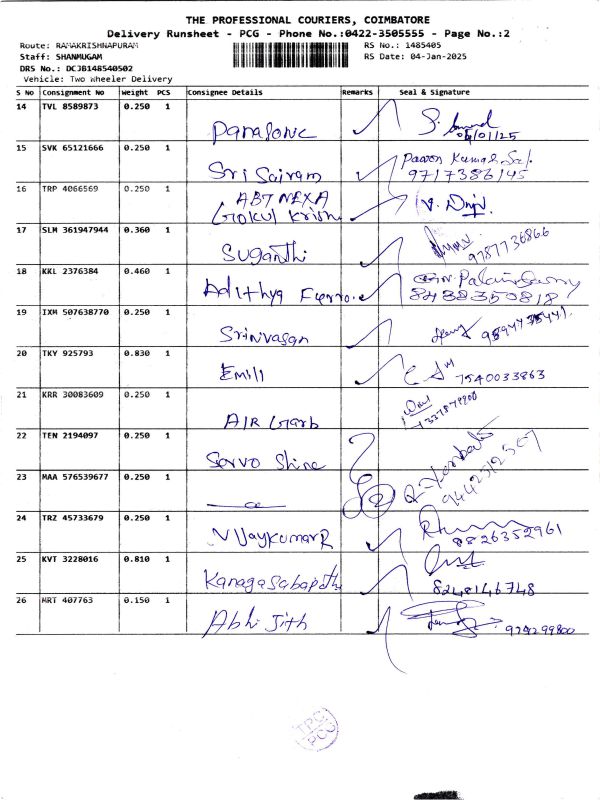 THE PROFESSIONAL COURIERS, COIMBATORE
Delivery Runsheet - PCG - Phone No.:0422-3505555 - Page No.:2
Route: RAMAKRISHNAPURAM RS No.: 1485405
Staff: SHANMUGAM RS Date: 04-Jan-2025
DRS No.: DCJB148540502
Vehicle: Two Wheeler Delivery
S No Consignment No Weight PCS Consignee Details Remarks Seal & Signature
14 TVL 8589873 0.250 1
Panasonic
04/01/25
15 SVK 65121666 0.250 1
Sri Sairam
Pavan Kumar
9717386145
16 TRP 4066569 0.250 1
ABT NEXA
Gokul Krish
17 SLM 361947944 0.360 1
Suganthi
9787736866
18 KKL 2376384 0.460 1
Adithya Ferro
8438350818
19 IXM 507638770 0.250 1
Srinivasan
20 TKY 925793 0.830 1
Emili
7540033863
21 KRR 30083609 0.250 1
AIR Garb
22 TEN 2194097 0.250 1
Servo Shine
9442512507
23 MAA 576539677 0.250 1
24 TRZ 45733679 0.250 1
VijaykumarR
8826352961
25 KVT 3228016 0.810 1
Kanagasabapathi
8248146748
26 MRT 407763 0.150 1
Abhi Jith
TPC
PCG